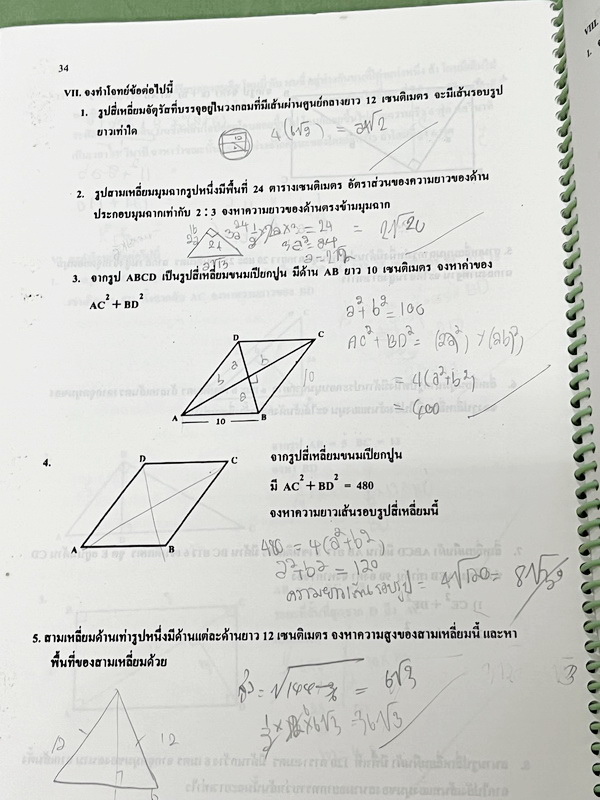 34
VII. จงทำโจทย์ข้อต่อไปนี้
1. รูปสี่เหลี่ยมจัตุรัสที่บรรจุอยู่ในวงกลมที่มีเส้นผ่านศูนย์กลางยาว 12 เซนติเมตร จะมีเส้นรอบรูป
ยาวเท่าใด
4(6√2) = 24√2
2. รูปสามเหลี่ยมมุมฉากรูปหนึ่งมีพื้นที่ 24 ตารางเซนติเมตร อัตราส่วนของความยาวของด้าน
ประกอบมุมฉากเท่ากับ 2 : 3 จงหาความยาวของด้านตรงข้ามมุมฉาก
= 24
24
3. จากรูป ABCD เป็นรูปสี่เหลี่ยมขนมเปียกปูน มีด้าน AB ยาว 10 เซนติเมตร จงหาค่าของ
AC² + BD²
a² + b² = 100
D C
AC² + BD² =
a b
b a 10
= 4(a²+b²)
= 400
A 10 B
4. D C
จากรูปสี่เหลี่ยมขนมเปียกปูน
มี AC² + BD² = 480
จงหาความยาวเส้นรอบรูปสี่เหลี่ยมนี้
A B
480 = 4(a²+b²)
a²+b² = 120
ความยาวเส้นรอบรูป = 4√120 =
5. สามเหลี่ยมด้านเท่ารูปหนึ่งมีด้านแต่ละด้านยาว 12 เซนติเมตร จงหาความสูงของสามเหลี่ยมนี้ และหา
พื้นที่ของสามเหลี่ยมด้วย
= 6√3
12 12
×6√3 = 36√3